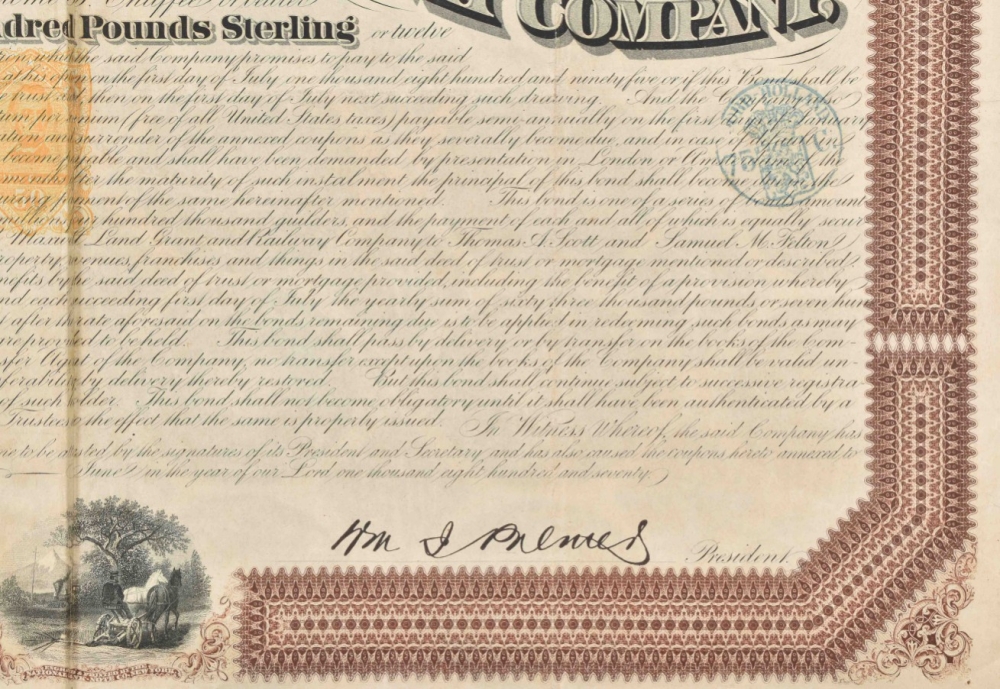 COMPANY,
Pounds Sterling or twelve
said Company promises to pay to the said
on the first day of July one thousand eight hundred and ninety five or if this Bond shall be
then on the first day of July next succeeding such drawing. And the
per annum (free of all United States taxes) payable semi-annually on the first
and surrender of the annexed coupons as they severally become due, and in case
become payable and shall have been demanded by presentation in London or
after the maturity of such instalment the principal of this bond shall become
of the same hereinafter mentioned. This bond is one of a series of
hundred thousand guilders, and the payment of each and all of which is equally
Land Grant and Railway Company to Thomas A. Scott, and Samuel M. Felton
franchises and things in the said deed of trust or mortgage mentioned or described
by the said deed of trust or mortgage provided, including the benefit of a provision whereby
each succeeding first day of July the yearly sum of sixty three thousand pounds or seven
after the rate aforesaid on the bonds remaining due is to be applied in redeeming such bonds as may
are provided to be held. This bond shall pass by delivery or by transfer on the books of the Com-
Agent of the Company, no transfer except upon the books of the Company shall be valid un-
by delivery thereby restored. But this bond shall continue subject to successive registra
of such holder. This bond shall not become obligatory until it shall have been authenticated by a
Trustees to the effect that the same is properly issued. In Witness Whereof, the said Company has
to be attested by the signatures of its President and Secretary, and has also caused the coupons hereto annexed to
June in the year of our Lord one thousand eight hundred and seventy.
Wm J Palmer
President.